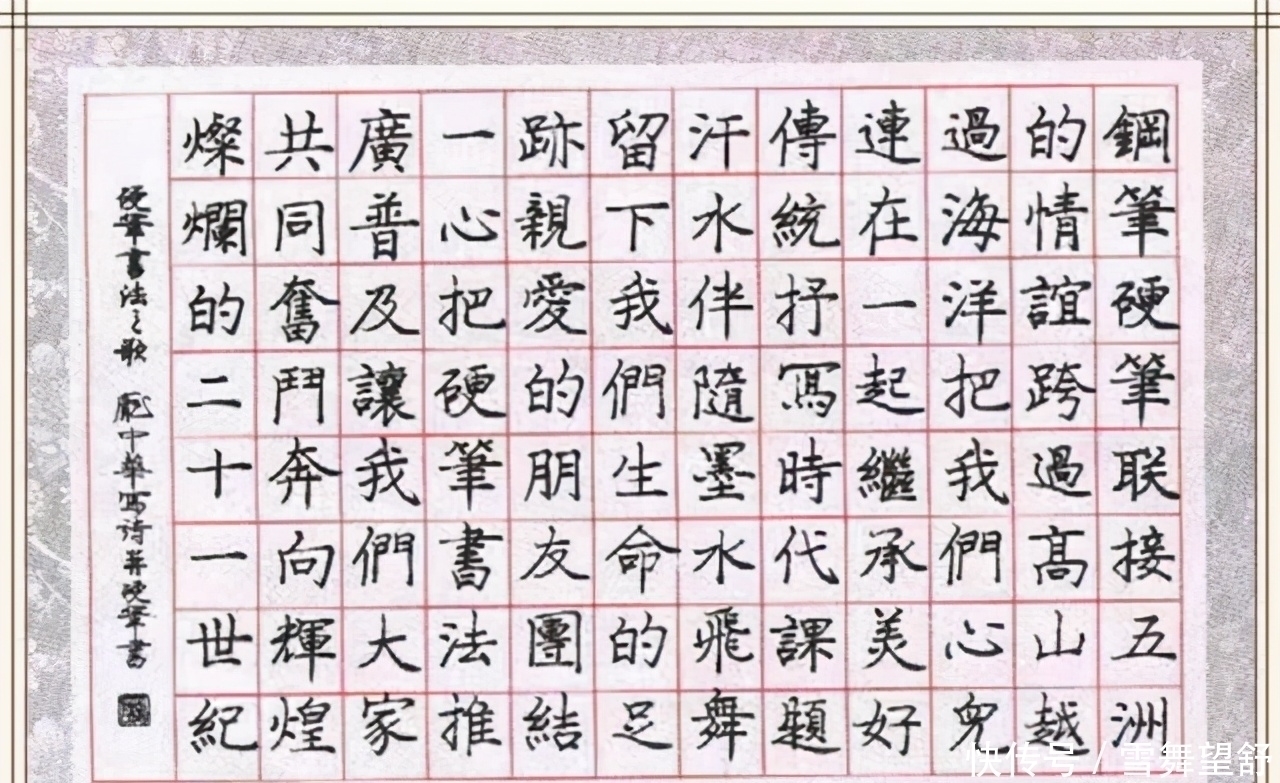 鋼筆硬筆联接五洲
的情誼跨過髙山越
過海洋把我們心兒
連在一起繼承美好
傳統抒寫時代課題
汗水伴隨墨水飛舞
留下我們生命的足
跡親愛的朋友團結
一心把硬筆書法推
廣普及讓我們大家
共同奮鬥奔向輝煌
燦爛的二十一世紀
硬筆書法之歌 龐中華寫诗并硬筆書
快传号 / 雪舞望舒